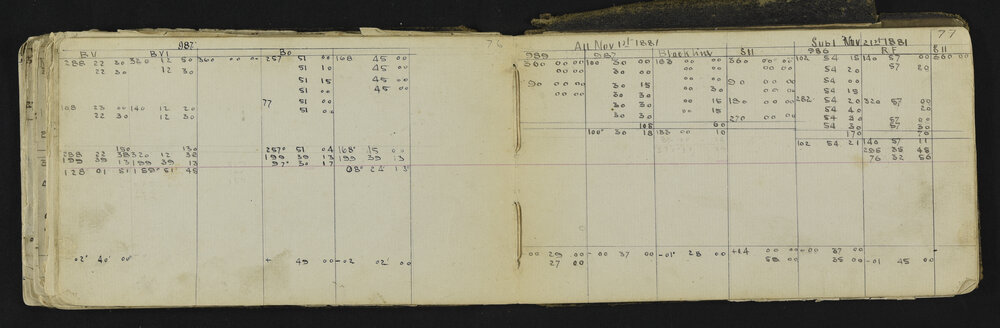 76
987
BV BVI Bo
288 22 30 320 12 50 360 00 00 257 51 00 168 45 00
22 30 12 30 51 10 45 00
51 15 45 00
51 00 45 00
77 51 00
108 23 00 140 12 20 51 00
22 30 12 30
150 130
288 22 38 320 12 38 257° 51 04 168° 45 00
199 39 13 199 39 13 199 39 13 199 39 13
128 01 51 159° 51 45 97° 30 17 08° 24 13
02° 40 00 49 00 -02 02 00
77
All Nov 12th 1881 Sub1 Nov 21st 1881
989 987 Blackline S11 986 RF S11
360 00 00 100 30 00 183 00 00 360 00 00 102 54 15 140 57 00 360 00
00 00 30 00 00 00 00 54 20 57 20
90 00 00 30 15 00 90 00 00 54 00
00 00 30 00 30 00 00 54 15
30 00 15 180 00 00 282 54 20 320 57 00
30 30 00 00 00 54 40
30 30 15 270 00 00 54 30 57 00
105 60 54 30 57 30
100° 30 18 183 00 10 170 70
102 54 21 140 57 11
295 35 45
76 32 56
00 29 00 -00 37 00 -01° 28 00 +04 00 00 -00 37 00
27 00 58 00 35 00 -01 45 00